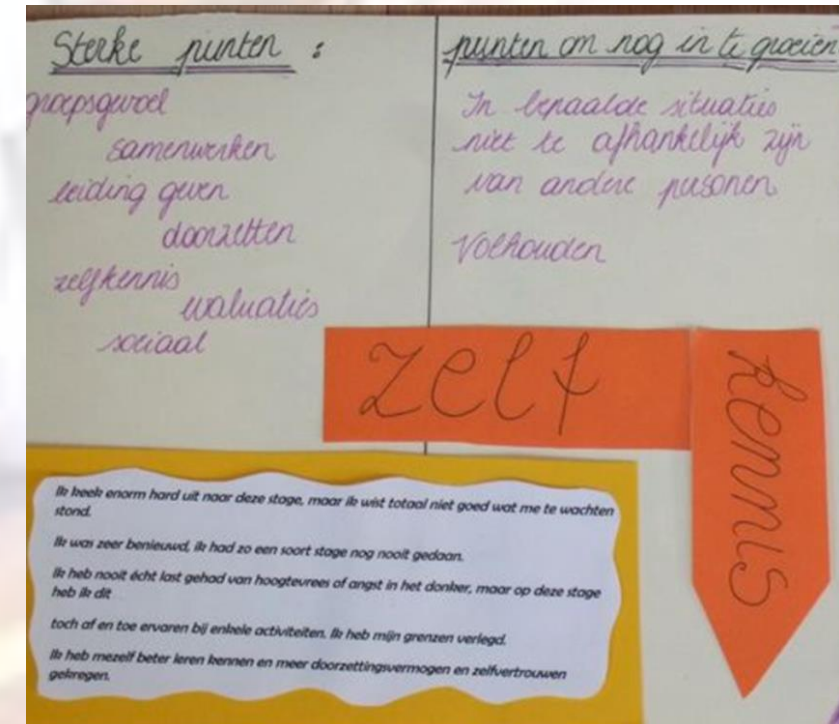 Sterke punten :
groepsgevoel
samenwerken
leiding geven
doorzetten
zelfkennis
evaluaties
sociaal
punten om nog in te groeien
In bepaalde situaties
niet te afhankelijk zijn
van andere personen
Volhouden
zelf
kennis
Ik keek enorm hard uit naar deze stage, maar ik wist totaal niet goed wat me te wachten
stond.
Ik was zeer benieuwd, ik had zo een soort stage nog nooit gedaan.
Ik heb nooit écht last gehad van hoogtevrees of angst in het donker, maar op deze stage
heb ik dit
toch af en toe ervaren bij enkele activiteiten. Ik heb mijn grenzen verlegd.
Ik heb mezelf beter leren kennen en meer doorzettingsvermogen en zelfvertrouwen
gekregen.